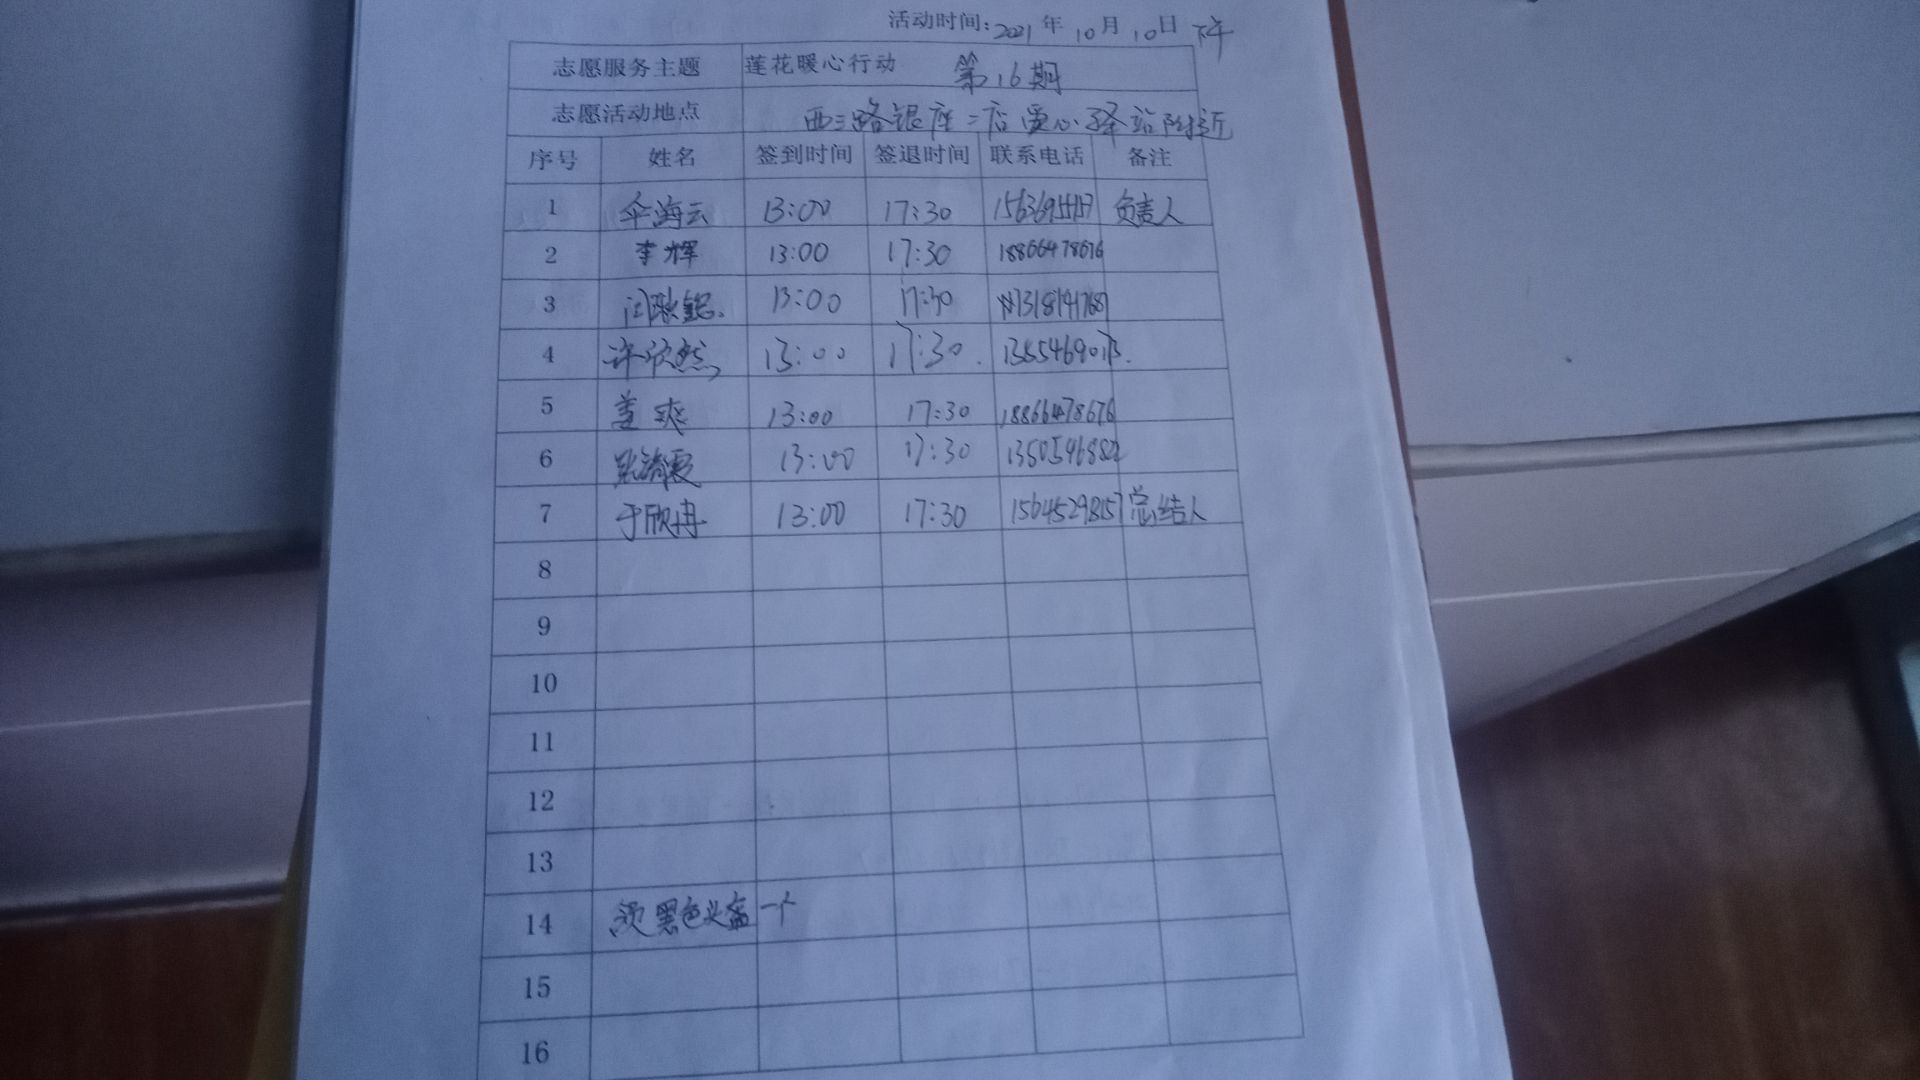 活动时间：2021年10月10日下午
志愿服务主题 莲花暖心行动 第16期
志愿活动地点 西三路银座二店爱心驿站附近
序号 姓名 签到时间 签退时间 联系电话 备注
1 海云 13:00 17:30 负责人
2 李辉 13:00 17:30 18866478676
3 13:00 17:30
4 许欣然 13:00 17:30
5 盖爽 13:00 17:30 18866478676
6 13:00 17:30
7 于欣冉 13:00 17:30 15645298157 总结人
8
9
10
11
12
13
14 黑色头盔一个
15
16